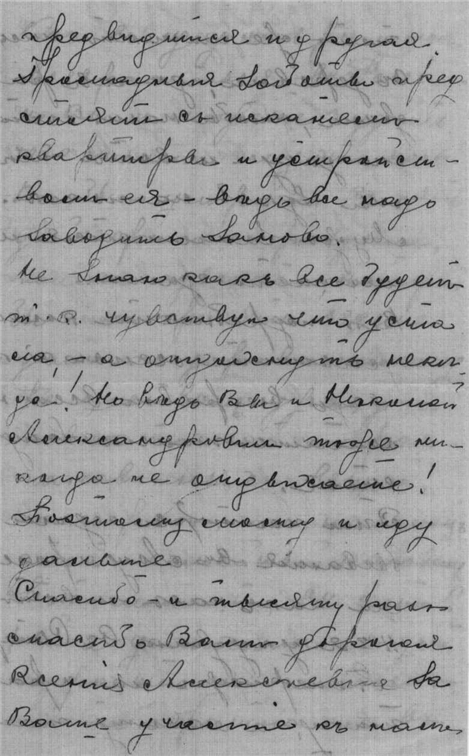 предвидится и другая.
Громадныя заботы пред
стоятъ съ исканіемъ
квартиры и устройст-
вомъ ея – вѣдь все надо
заводить заново.
Не знаю какъ все будетъ
т.к. чувствую что уста
ла, – а отдохнуть неко-
гда! Но вѣдь Вы и Николай
Александровичъ тоже ни-
когда не отдыхаете!
Поэтому молчу и иду
дальше
Спасибо – и тысячу разъ
спасибо Вамъ дорогая
Ксенія Алексѣевна за
Ваше участіе къ намъ